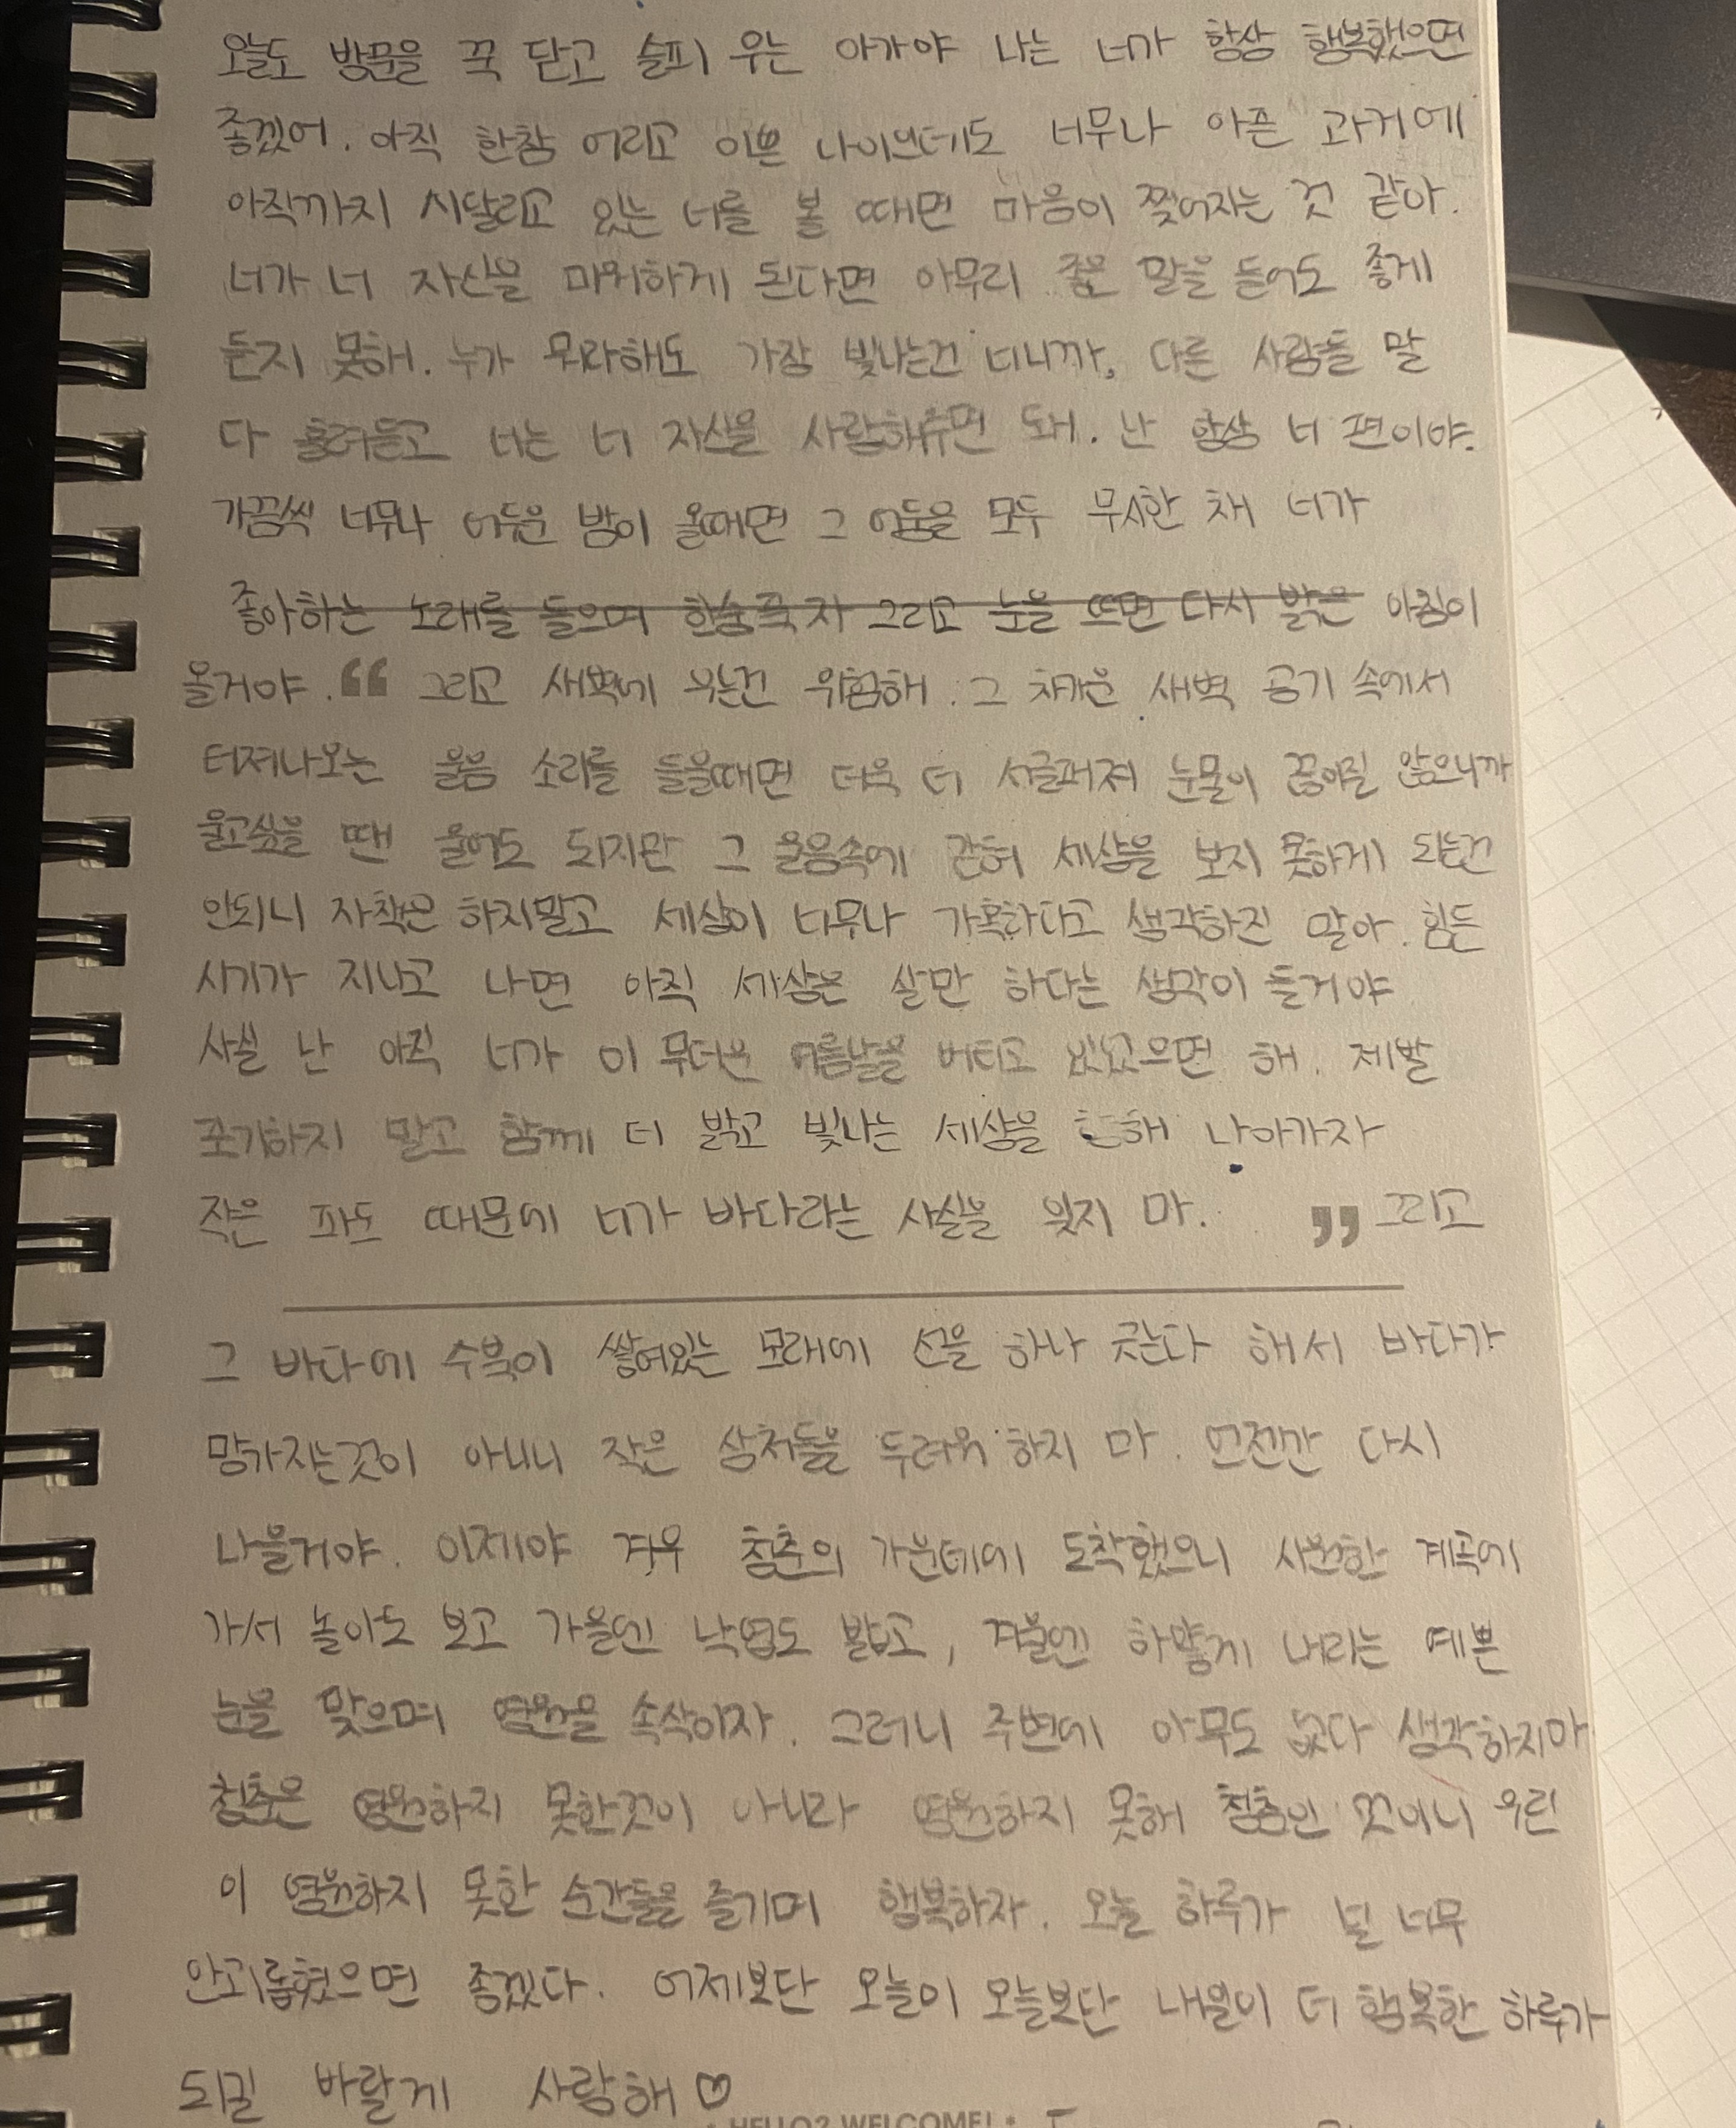 오늘도 방문을 꾹 닫고 슬피 우는 아가야 나는 너가 항상 행복했으면
좋겠어. 아직 한참 어리고 이쁜 나이인데도 너무나 아픈 과거에
아직까지 시달리고 있는 너를 볼 때면 마음이 찢어지는 것 같아.
너가 너 자신을 미워하게 된다면 아무리 좋은 말을 들어도 좋게
듣지 못해. 누가 뭐라해도 가장 빛나는건 너니까, 다른 사람들 말
다 흘려듣고 너는 너 자신을 사랑해주면 돼. 난 항상 너 편이야.
가끔씩 너무나 어두운 밤이 올때면 그 어둠을 모두 무시한 채 너가
좋아하는 노래를 들으며 한숨푹 자 그리고 눈을 뜨면 다시 밝은 아침이
올거야. “ 그리고 새벽에 우는건 위험해. 그 차가운 새벽 공기 속에서
터져나오는 울음 소리를 들을때면 더욱 더 서글퍼져 눈물이 끊이질 않으니까
울고싶을 땐 울어도 되지만 그 울음속에 갇혀 세상을 보지 못하게 되는건
안되니 자책은 하지말고 세상이 너무나 가혹하다고 생각하진 말아. 힘든
시기가 지나고 나면 아직 세상은 살만 하다는 생각이 들거야
사실 난 아직 너가 이 무더운 여름날을 버티고 있었으면 해. 제발
포기하지 말고 함께 더 밝고 빛나는 세상을 향해 나아가자
작은 파도 때문에 너가 바다라는 사실을 잊지 마. ” 그리고
그 바다에 수북이 쌓여있는 모래에 선을 하나 긋는다 해서 바다가
망가지는것이 아니니 작은 상처들을 두려워 하지 마. 언젠간 다시
나을거야. 이제야 겨우 청춘의 가운데에 도착했으니 시원한 계곡에
가서 놀아도 보고 가을엔 낙엽도 밟고, 겨울엔 하얗게 내리는 예쁜
눈을 맞으며 영원을 속삭이자. 그러니 주변에 아무도 없다 생각하지마
청춘은 영원하지 못한것이 아니라 영원하지 못해 청춘인 것이니 우린
이 영원하지 못한 순간들을 즐기며 행복하자. 오늘 하루가 널 너무
안괴롭혔으면 좋겠다. 어제보단 오늘이 오늘보단 내일이 더 행복한 하루가
되길 바랄게 사랑해 ♡
* HELLO? WELCOME! *